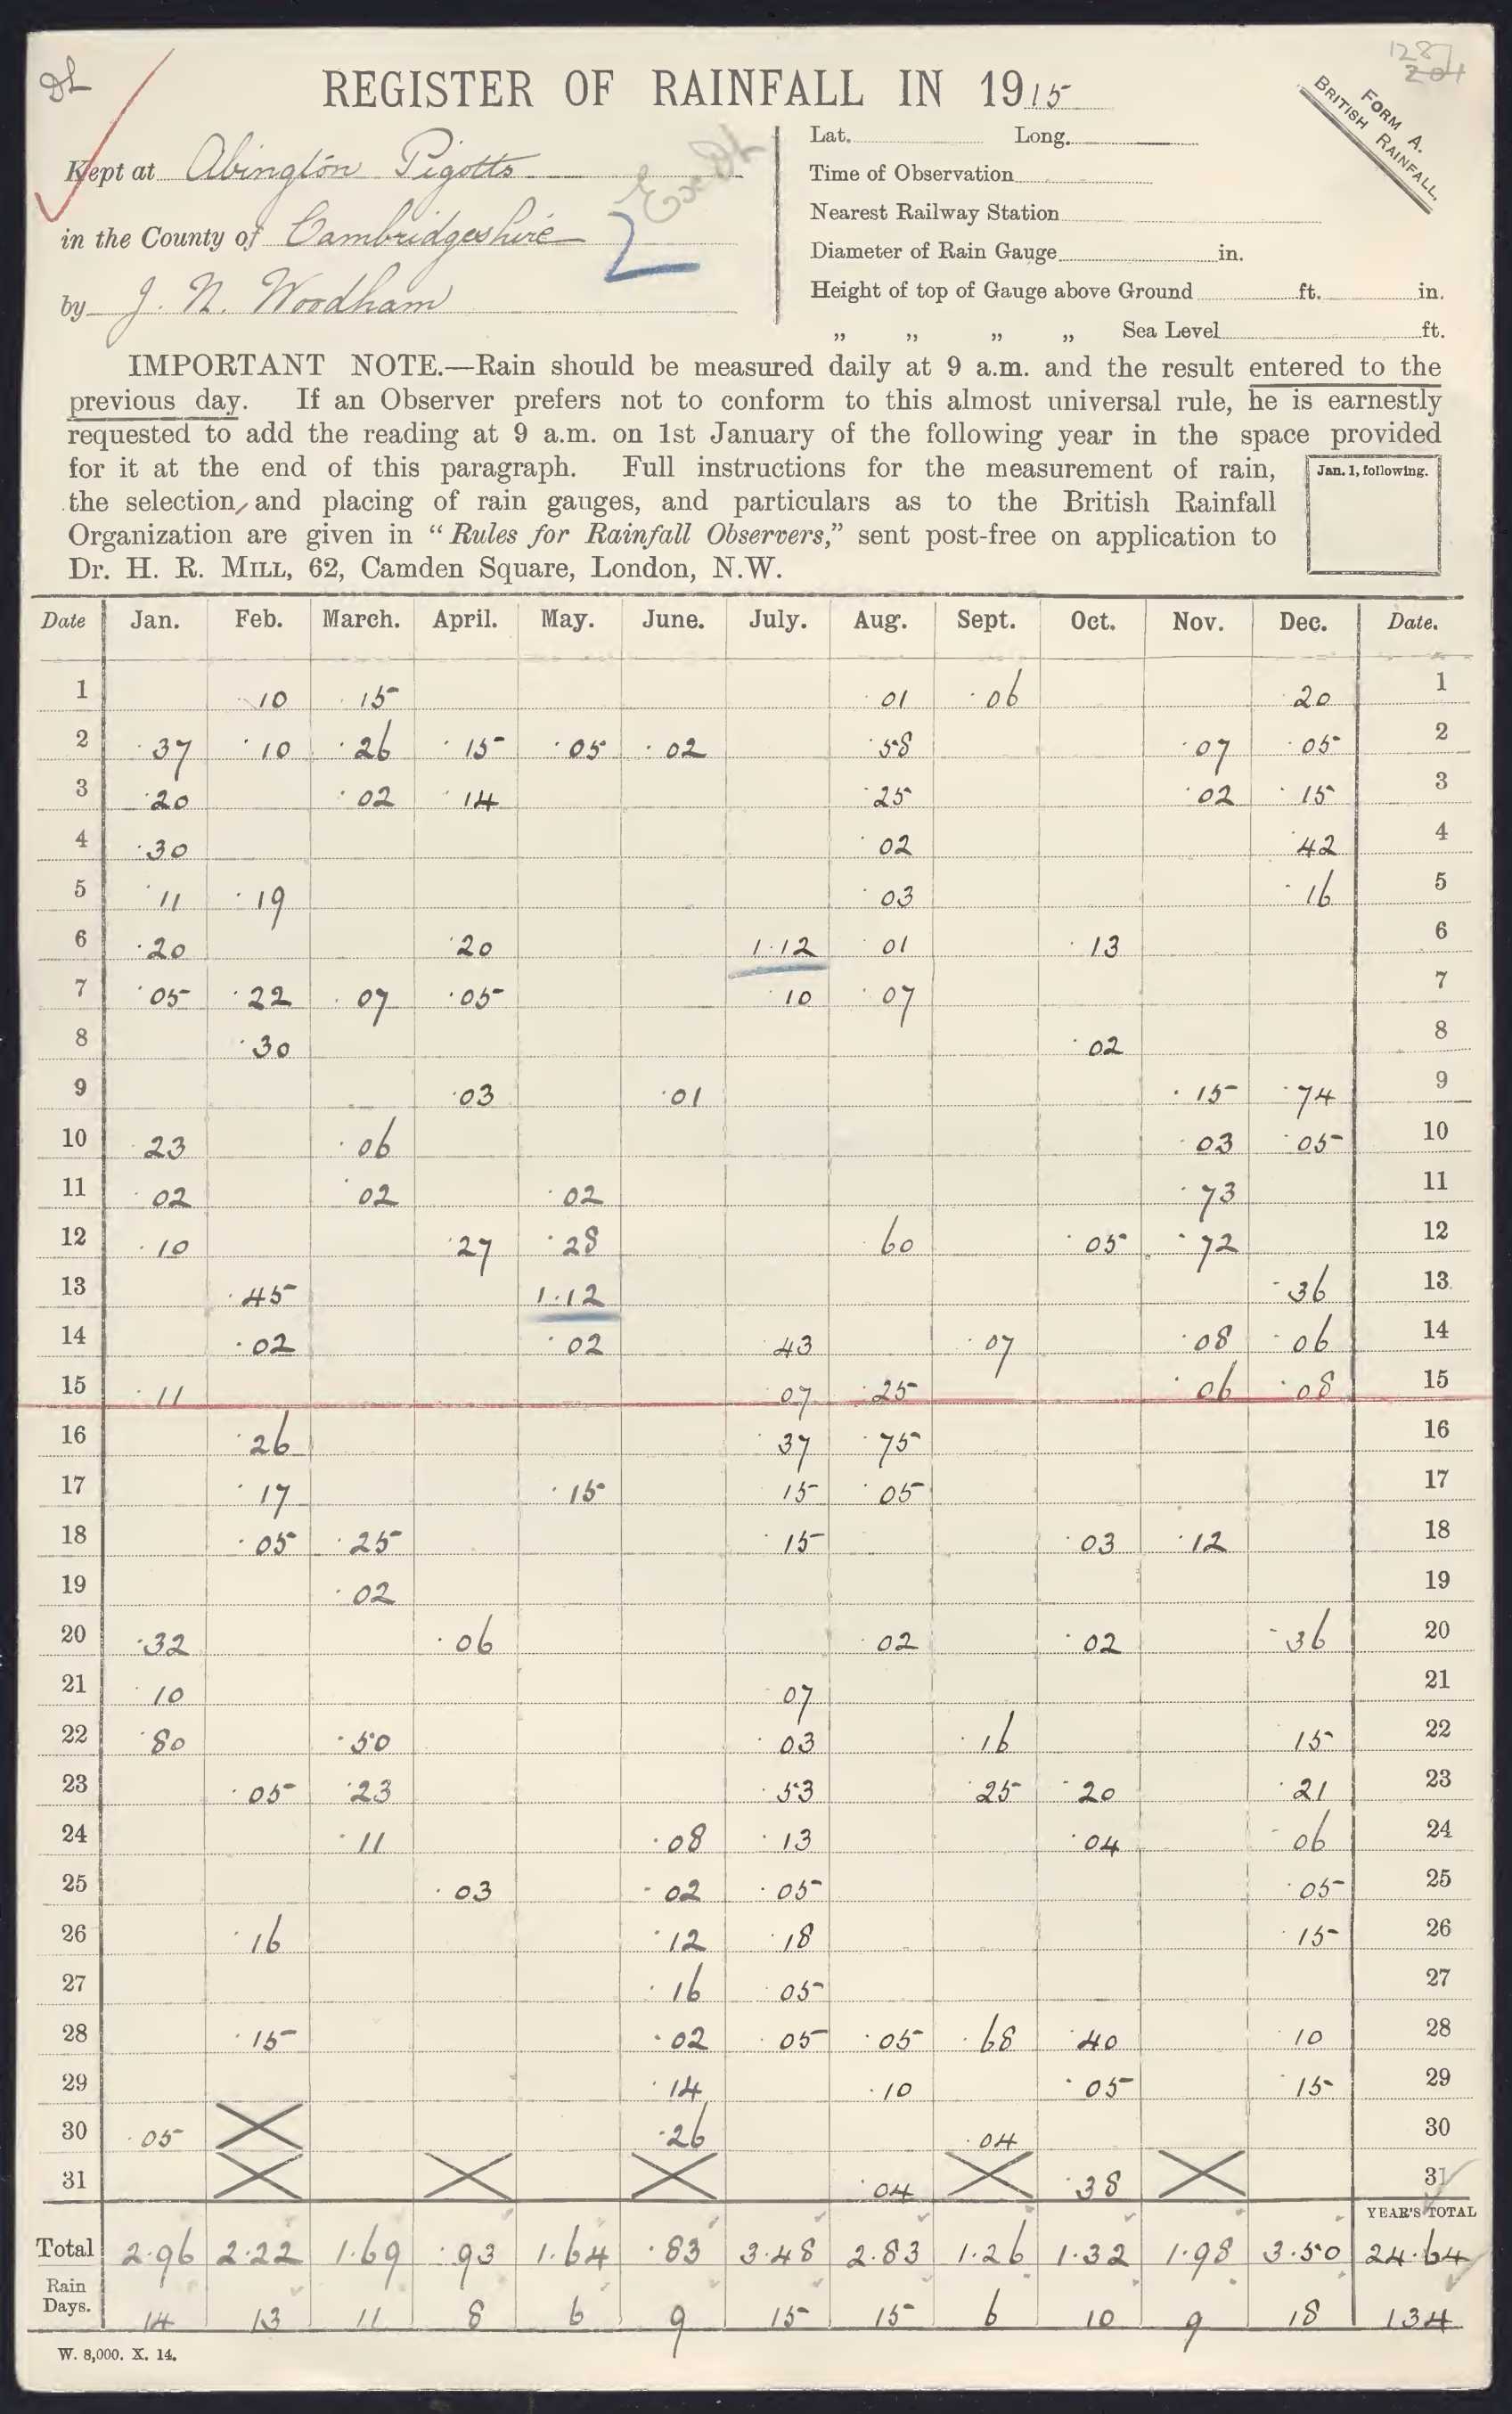 DL
1287
204
REGISTER OF RAINFALL IN 1915
FORM A.
BRITISH RAINFALL,
Kept at Abington Pigotts
in the County of Cambridgeshire
by J. N. Woodham
Lat. Long.
Time of Observation
Nearest Railway Station
Diameter of Rain Gauge in.
Height of top of Gauge above Ground ft. in.
„ „ „ „ Sea Level ft.
IMPORTANT NOTE.—Rain should be measured daily at 9 a.m. and the result entered to the
previous day. If an Observer prefers not to conform to this almost universal rule, he is earnestly
requested to add the reading at 9 a.m. on 1st January of the following year in the space provided
for it at the end of this paragraph. Full instructions for the measurement of rain,
the selection, and placing of rain gauges, and particulars as to the British Rainfall
Organization are given in “Rules for Rainfall Observers,” sent post-free on application to
Dr. H. R. MILL, 62, Camden Square, London, N.W.
Jan. 1, following.
Date Jan. Feb. March. April. May. June. July. Aug. Sept. Oct. Nov. Dec. Date.
1 ·10 ·15 ·01 ·06 ·20 1
2 ·37 ·10 ·26 ·15 ·05 ·02 ·58 ·07 ·05 2
3 ·20 ·02 ·14 ·25 ·02 ·15 3
4 ·30 ·02 ·42 4
5 ·11 ·19 ·03 ·16 5
6 ·20 ·20 1·12 ·01 ·13 6
7 ·05 ·22 ·07 ·05 ·10 ·07 7
8 ·30 ·02 8
9 ·03 ·01 ·15 ·74 9
10 ·23 ·06 ·03 ·05 10
11 ·02 ·02 ·02 ·73 11
12 ·10 ·27 ·28 ·60 ·05 ·72 12
13 ·45 1·12 ·36 13
14 ·02 ·02 ·43 ·07 ·08 ·06 14
15 ·11 ·07 ·25 ·06 ·08 15
16 ·26 ·37 ·75 16
17 ·17 ·15 ·15 ·05 17
18 ·05 ·25 ·15 ·03 ·12 18
19 ·02 19
20 ·32 ·06 ·02 ·02 ·36 20
21 ·10 ·07 21
22 ·80 ·50 ·03 ·16 ·15 22
23 ·05 ·23 ·53 ·25 ·20 ·21 23
24 ·11 ·08 ·13 ·04 ·06 24
25 ·03 ·02 ·05 ·05 25
26 ·16 ·12 ·18 ·15 26
27 ·16 ·05 27
28 ·15 ·02 ·05 ·05 ·68 ·40 ·10 28
29 ·14 ·10 ·05 ·15 29
30 ·05 ·26 ·04 30
31 ·04 ·38 31
YEAR'S TOTAL
Total 2·96 2·22 1·69 ·93 1·64 ·83 3·48 2·83 1·26 1·32 1·98 3·50 24·64
Rain
Days. 14 13 11 8 6 9 15 15 6 10 9 18 134
W. 8,000. X. 14.